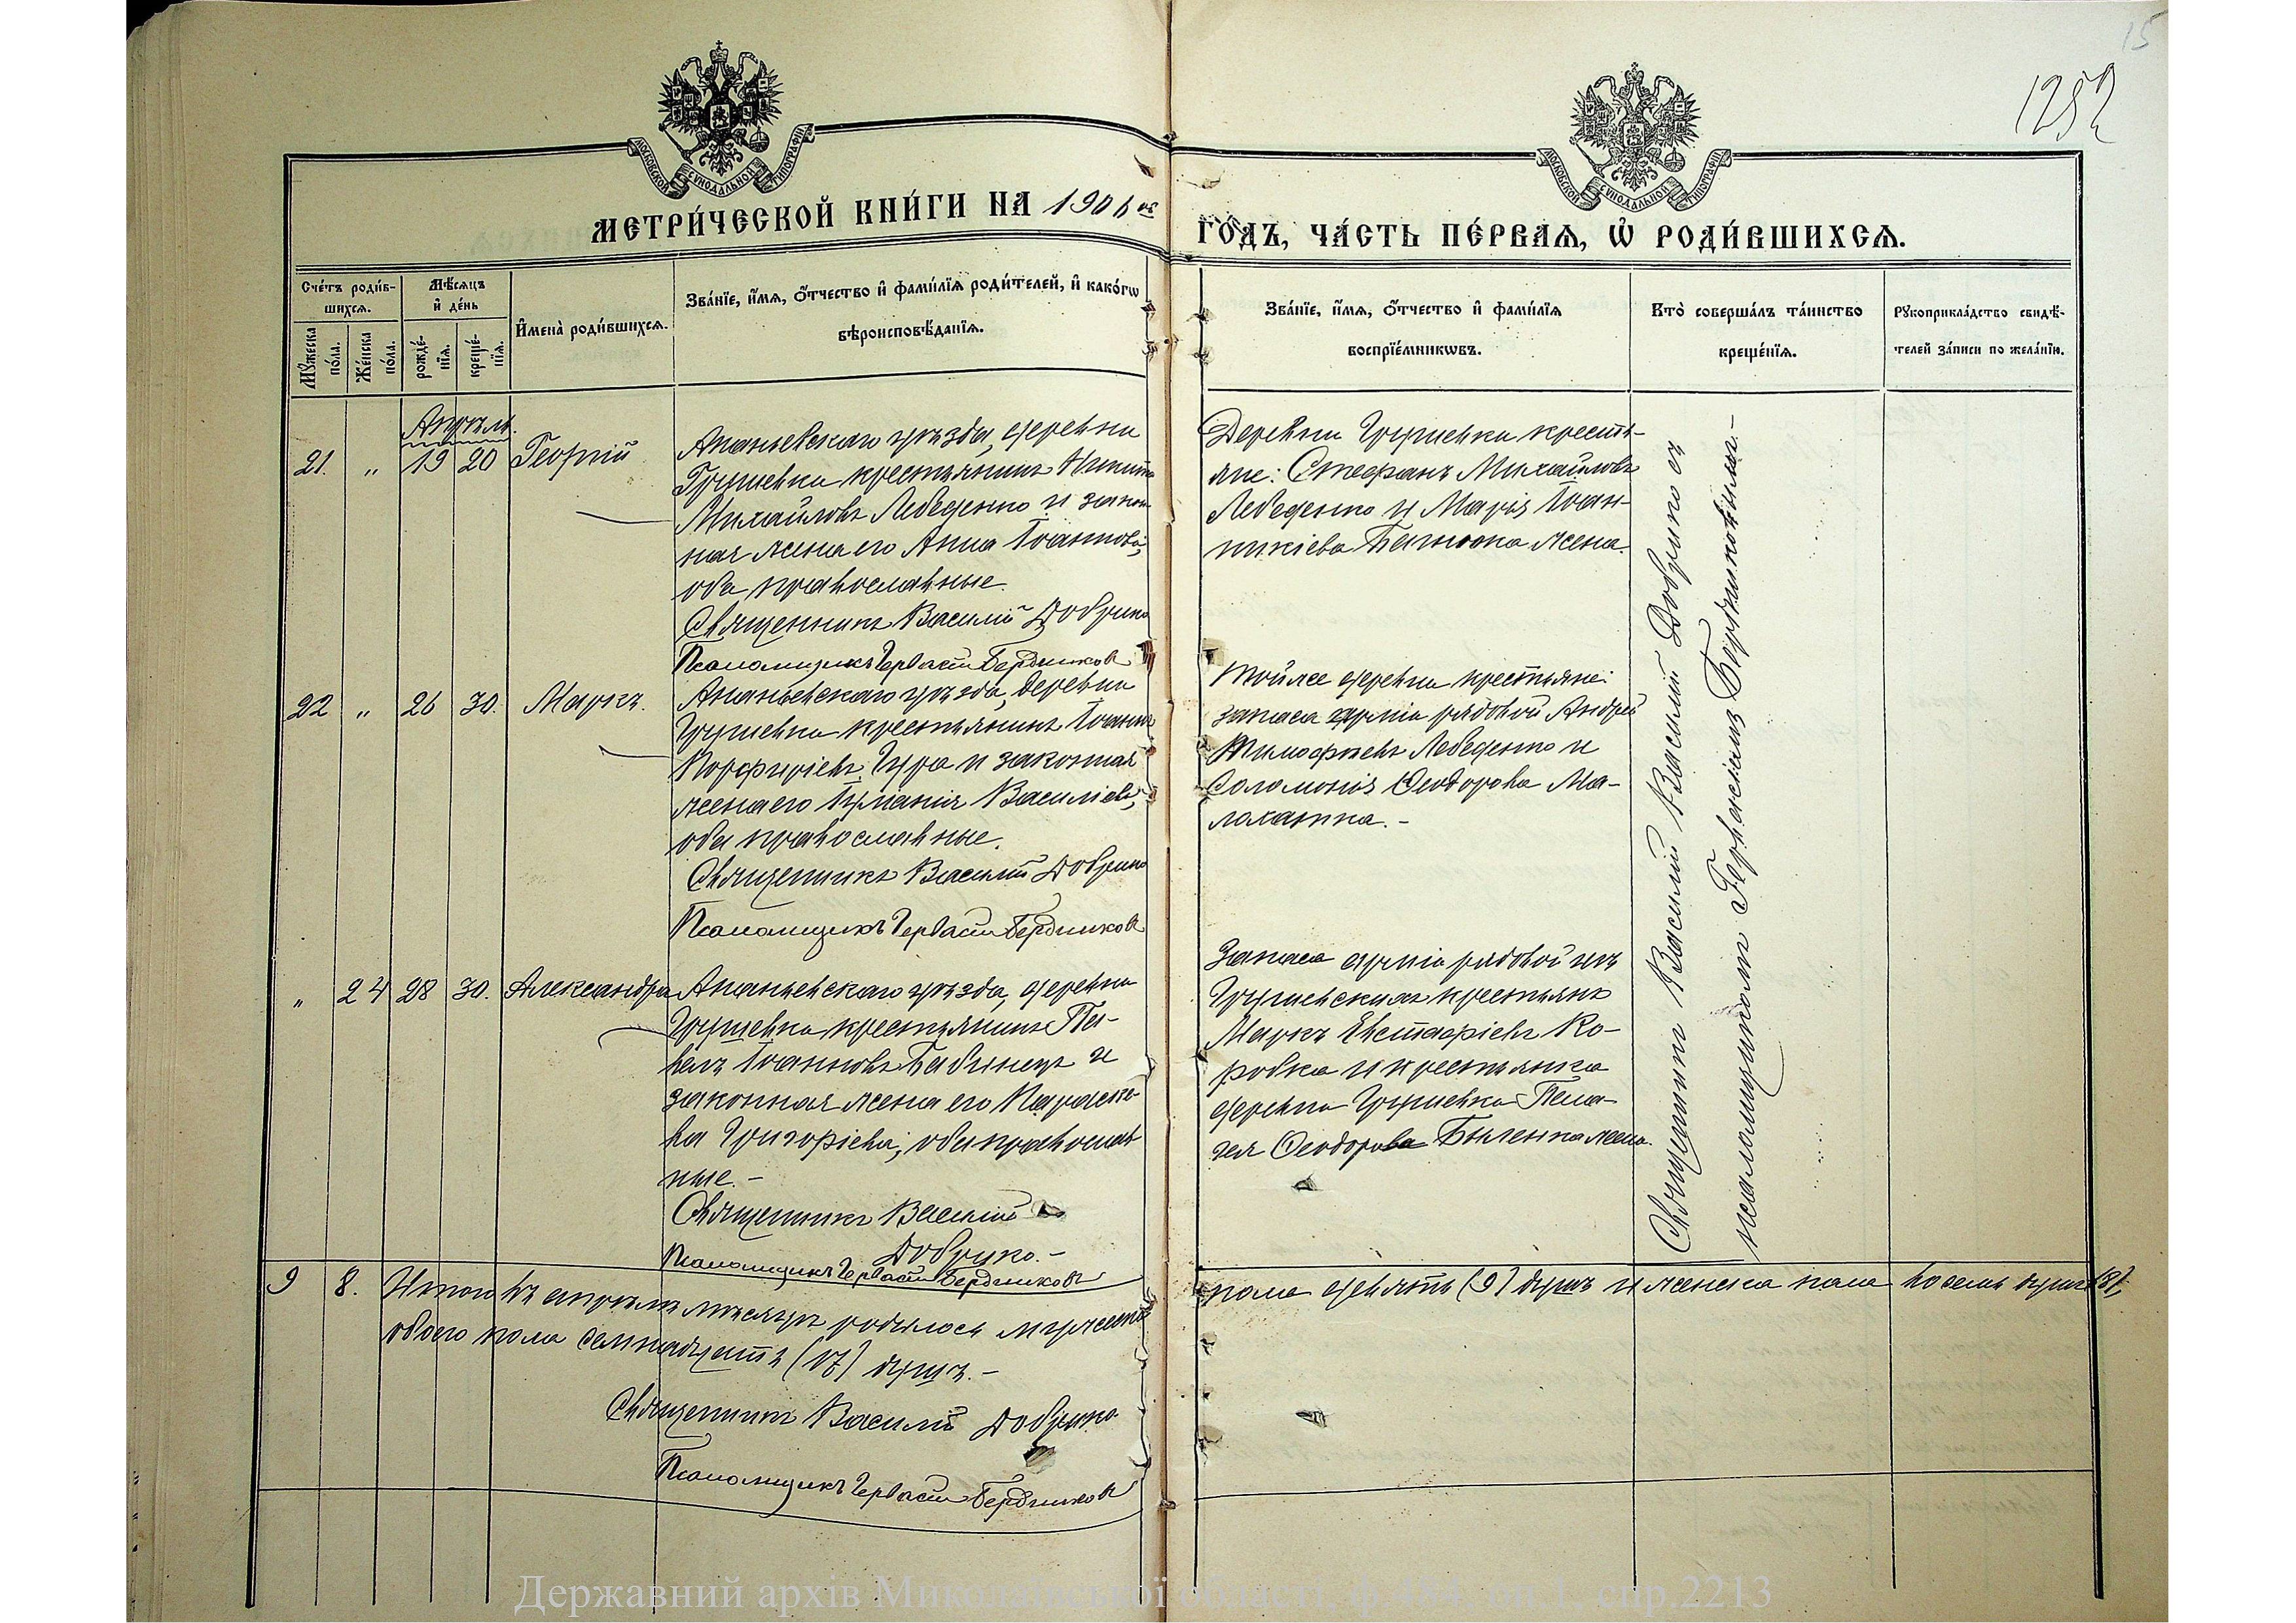 15
1252
МОСКОВСКОЙ СѴНОДАЛЬНОЙ ТИПОГРАФІИ
МОСКОВСКОЙ СѴНОДАЛЬНОЙ ТИПОГРАФІИ
МЕТРИ́ЧЕСКОЙ КНИ́ГИ НА 1906 ой ГО́ДЪ, ЧА́СТЬ ПЕ́РВАѦ, Ѡ҆ РОДИ́ВШИХСѦ.
Сче́тъ роди́в-
шихсѧ.
Мꙋ́жеска по́ла.
Же́нска по́ла.
Мѣ́сѧцъ
и҆ де́нь
рожде́-
нїѧ.
креще́-
нїѧ.
И҆мена̀ роди́вшихсѧ.
Зва́нїе, и҆́мѧ, ѻ҆́тчество и҆ фами́лїѧ роди́телей, и҆ како́гѡ
вѣроисповѣ́данїѧ.
Зва́нїе, и҆́мѧ, ѻ҆́тчество и҆ фами́лїѧ
воспрїе́мникѡвъ.
Кто̀ соверша́лъ та́инство
креще́нїѧ.
Рꙋкоприкла́дство свидѣ́-
телей за́писи по жела́нїю.
Апрѣль.
21. „ 19 20 Георгій
Ананьевскаго уѣзда, деревни
Грушевки крестьянинъ Никита
Михайловъ Лебеденко и закон-
ная жена его Анна Іоаннова,
оба православные.
Священникъ Василій Добрико
Псаломщикъ Гервасій Бердниковъ
Деревни Грушевки крестья-
яне: Стефанъ Михайловъ
Лебеденко и Марія Іоан-
никіева жена.
22 „ 26 30. Маркъ.
Ананьевскаго уѣзда, деревни
Грушевки крестьянинъ Іоаннъ
Порфиріевъ Гура и законная
жена его Іуліанія Василіева,
оба православные.
Священникъ Василій Добрико
Псаломщикъ Гервасій Бердниковъ
Той же деревни крестьяне:
запаса арміи рядовой Андрей
Тимофѣевъ Лебеденко и
Соломонія Ѳеодорова Ма-
лахатка. -
„ 24 28 30. Александра
Ананьевскаго уѣзда, деревни
Грушевки крестьянинъ Па-
велъ Іоанновъ Бабинецъ и
законная жена его Параске-
ва Григоріева, оба православ
ные. -
Священникъ Василій
Добрико. -
Псаломщикъ Гервасій Бердниковъ
Запаса арміи рядовой изъ
Грушевскихъ крестьянъ
Маркъ Евстафіевъ Ко-
робка и крестьянка
деревни Грушевки Пела-
гея Ѳеодорова Быленка жена.
Священникъ Василій Василій Добрико съ
псаломщикомъ Гервасіемъ Бердниковымъ. -
9 8. Итого въ апрѣлѣ мѣсяцѣ родилось мужеска пола девять (9) душъ и женска пола восемь душъ (8),
обоего пола семнадцать (17) душъ. -
Священникъ Василій Добрико
Псаломщикъ Гервасій Бердниковъ
Державний архів Миколаївської області, ф.484, оп.1, спр.2213